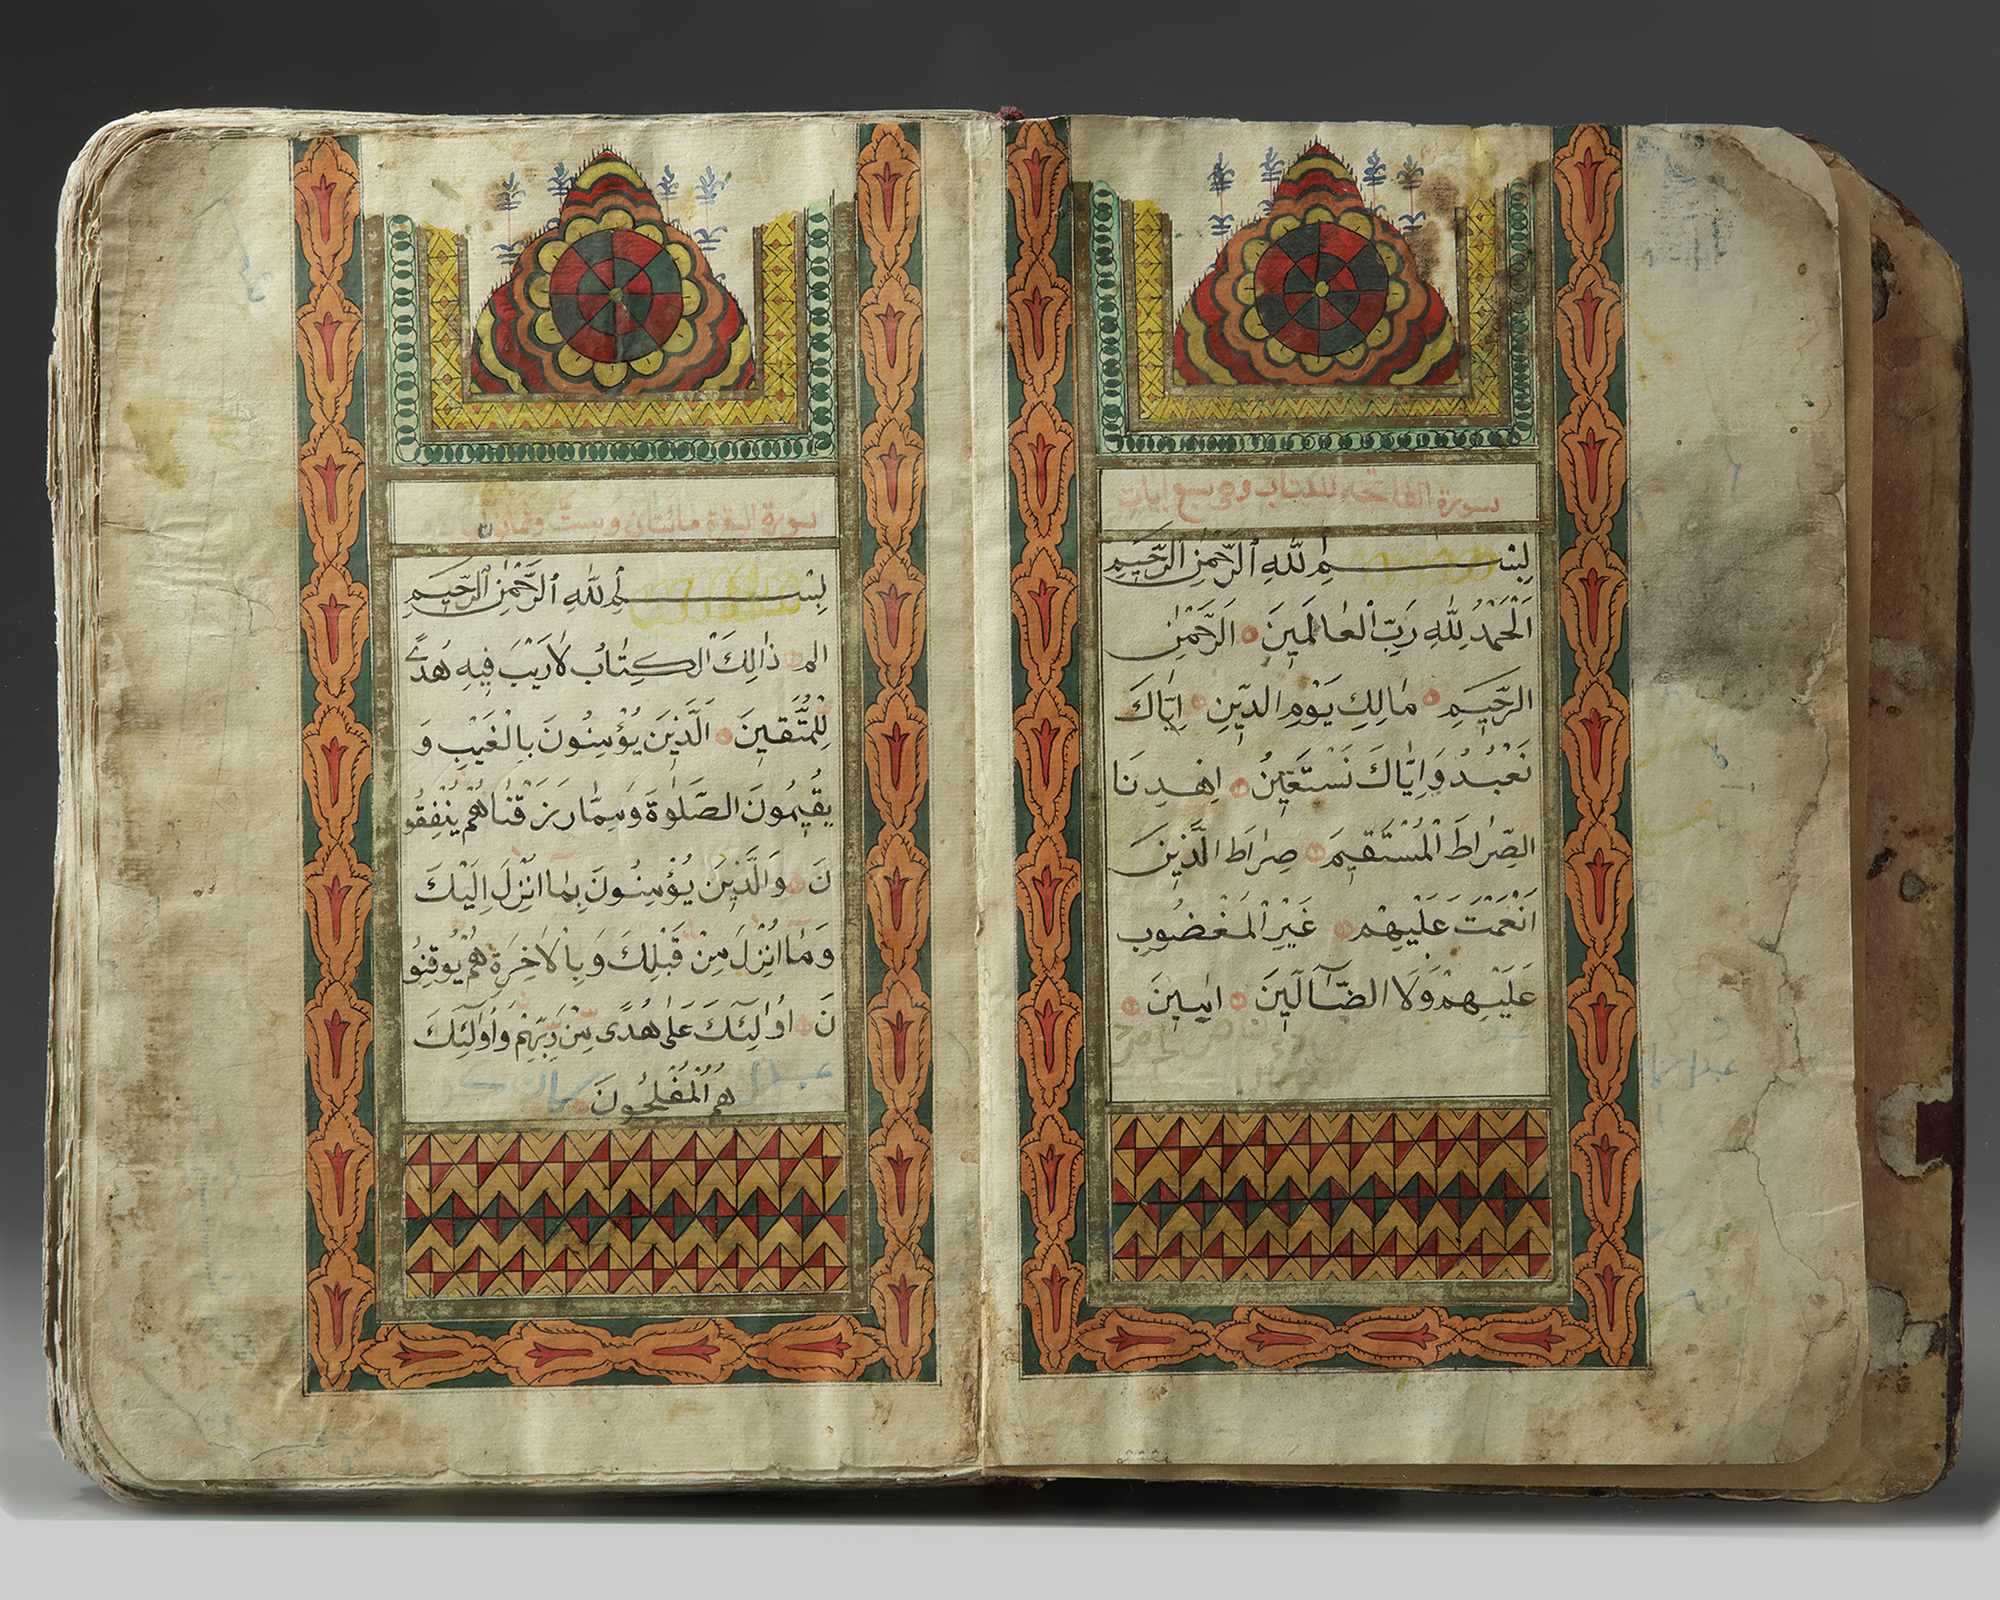 سورة الفاتحة للكتاب وهي سبع ايات
بِسْمِ اللهِ ٱلرَّحْمٰنِ ٱلرَّحِيمِ
اَلْحَمْدُ لِلّٰهِ رَبِّ ٱلْعَالَمِينَ الرَّحْمٰنِ
الرَّحِيمِ مٰالِكِ يَوْمِ الدِّينِ اِيَّاكَ
نَعْبُدُ وَاِيَّاكَ نَسْتَعِينُ اِهْدِنَا
الصِّرٰاطَ الْمُسْتَقِيمَ صِرٰاطَ الَّذِينَ
اَنْعَمْتَ عَلَيْهِمْ غَيْرِ الْمَغْضُوبِ
عَلَيْهِمْ وَلَا الضَّآلِّينَ اٰمِينَ
سورة البقرة مائتان وست وثمانون
بِسْمِ اللهِ ٱلرَّحْمٰنِ ٱلرَّحِيمِ
الم ذٰلِكَ الْكِتٰابُ لَا رَيْبَ فِيهِ هُدًى
لِلْمُتَّقِينَ اَلَّذِينَ يُؤْمِنُونَ بِالْغَيْبِ وَ
يُقِيمُونَ الصَّلٰوةَ وَمِمَّا رَزَقْنٰاهُمْ يُنْفِقُو
نَ وَالَّذِينَ يُؤْمِنُونَ بِمٰا اُنْزِلَ اِلَيْكَ
وَمٰا اُنْزِلَ مِنْ قَبْلِكَ وَبِالْاٰخِرَةِ هُمْ يُوقِنُو
نَ اُولٰئِكَ عَلٰى هُدًى مِّنْ رَبِّهِمْ وَاُولٰئِكَ
هُمُ الْمُفْلِحُونَ